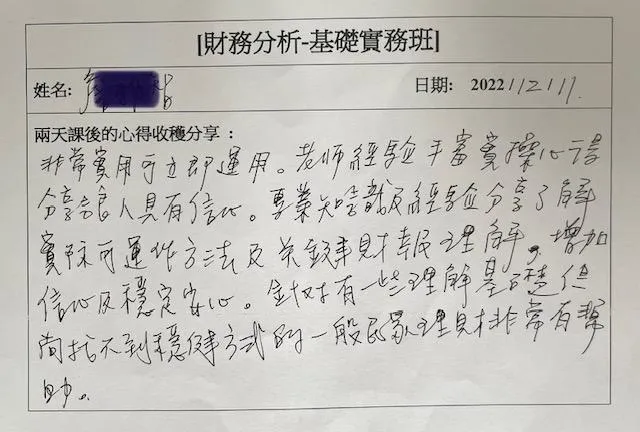 [財務分析-基礎實務班]
姓名: 日期: 2022/12/17.
兩天課後的心得收穫分享：
非常實用可立即運用。老师經验丰富實操心得
分享讓人具有信心。專業知識及經驗分享了解
實際可運作方法及 財報理解，增加
信心及穩定安心。針对有一些理解基礎但
尚找不到穩健方式的一般民眾理財非常有幫
助。